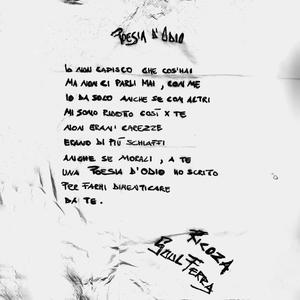 POESIA D'ODIO
IO NON CAPISCO CHE COS'HAI
MA NON CI PARLI MAI, CON ME
IO DA SOLO ANCHE SE CON ALTRI
MI SONO RIDOTTO COSÌ X TE
NON ERAN' CAREZZE
ERANO DI PIÙ SCHIAFFI
ANCHE SE MORALI, A TE
UNA POESIA D'ODIO HO SCRITTO
PER FARMI DIMENTICARE
DA TE.
RICOZA
FERRA